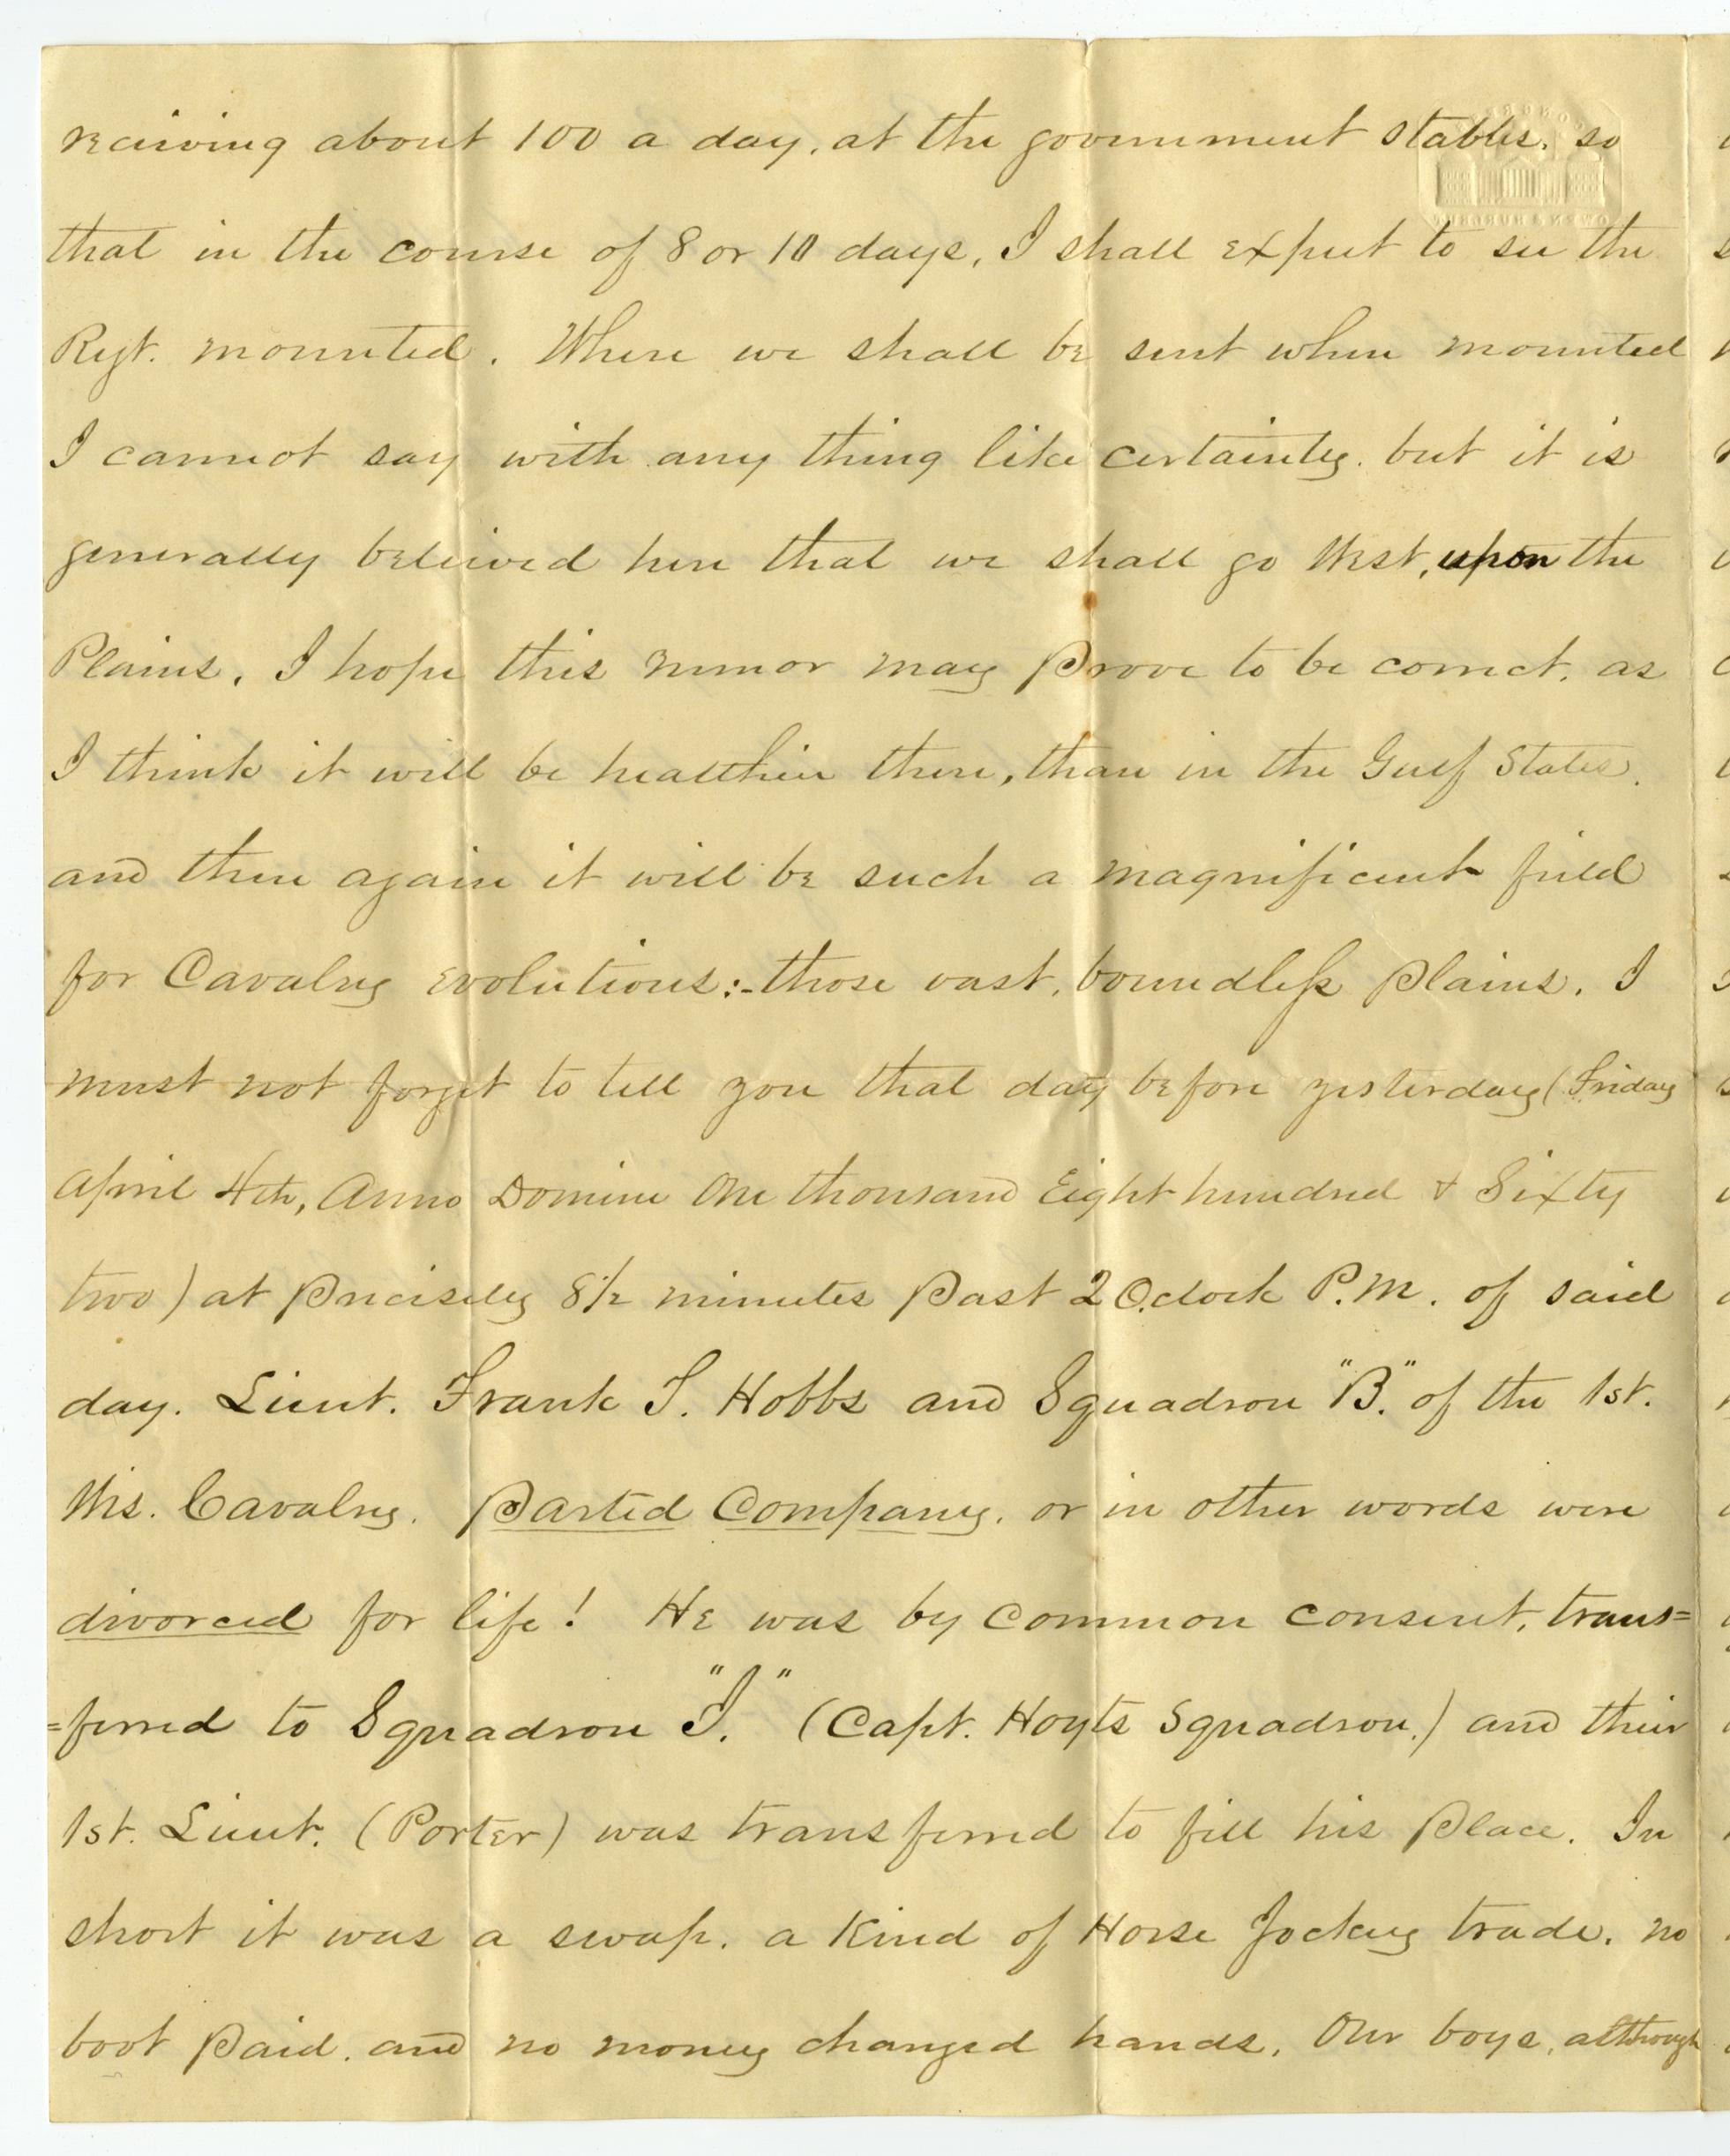 receiving about 100 a day, at the government stables. so
that in the course of 8 or 10 days, I shall expect to see the
Regt. mounted. Where we shall be sent when mounted
I cannot say with any thing like certainty. but it is
generally beleived here that we shall go West, upon the
Plains, I hope this rumor may prove to be correct. as
I think it will be healthier there, than in the Gulf States.
and then again it will be such a magnificent field
for Cavalry evolutions:- those vast, boundless Plains. I
must not forget to tell you that day before yesterday (Friday
April 4th, Anno Domine One thousand Eight hundred & Sixty
two) at Precisely 8½ minutes Past 2 O.clock P.M. of said
day. Lieut. Frank T. Hobbs and Squadron "B." of the 1st.
Wis. Cavalry. Parted Company. or in other words were
divorced for life! He was by common consent, trans=
=ferred to Squadron "I." (Capt. Hoyts Squadron.) and their
1st. Lieut. (Porter) was transferred to fill his Place. In
short it was a swap. a Kind of Horse Jockey trade. no
boot Paid. and no money changed hands. Our boys, although